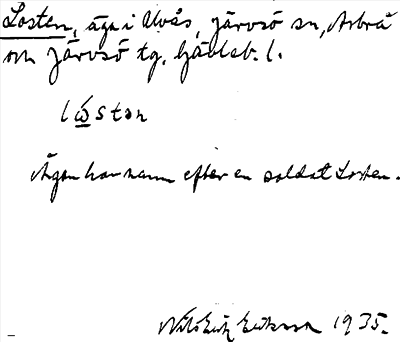 Losten, äga i Ulvås, Järvsö sn, Arbrå
och Järvsö tg, Gävleb. l.
lωstən
Ägan har namn efter en soldat Losten.
Nils Erik Eriksson 1935.